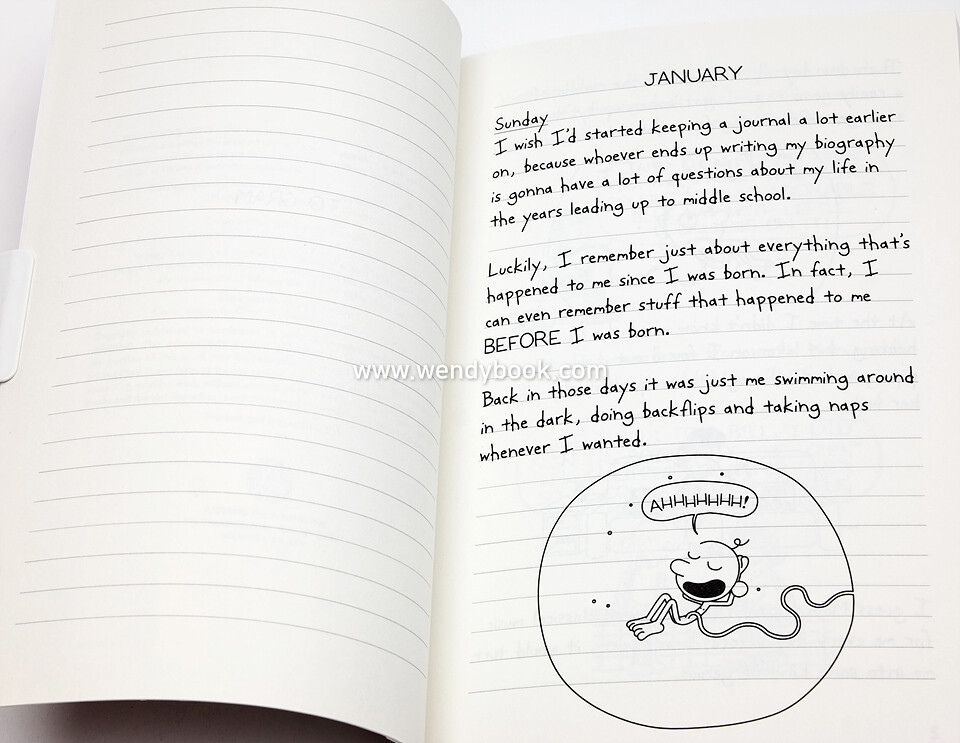 JANUARY
Sunday
I wish I'd started keeping a journal a lot earlier
on, because whoever ends up writing my biography
is gonna have a lot of questions about my life in
the years leading up to middle school.
Luckily, I remember just about everything that's
happened to me since I was born. In fact, I
can even remember stuff that happened to me
BEFORE I was born.
www.wendybook.com
Back in those days it was just me swimming around
in the dark, doing backflips and taking naps
whenever I wanted.
AHHHHHHH!